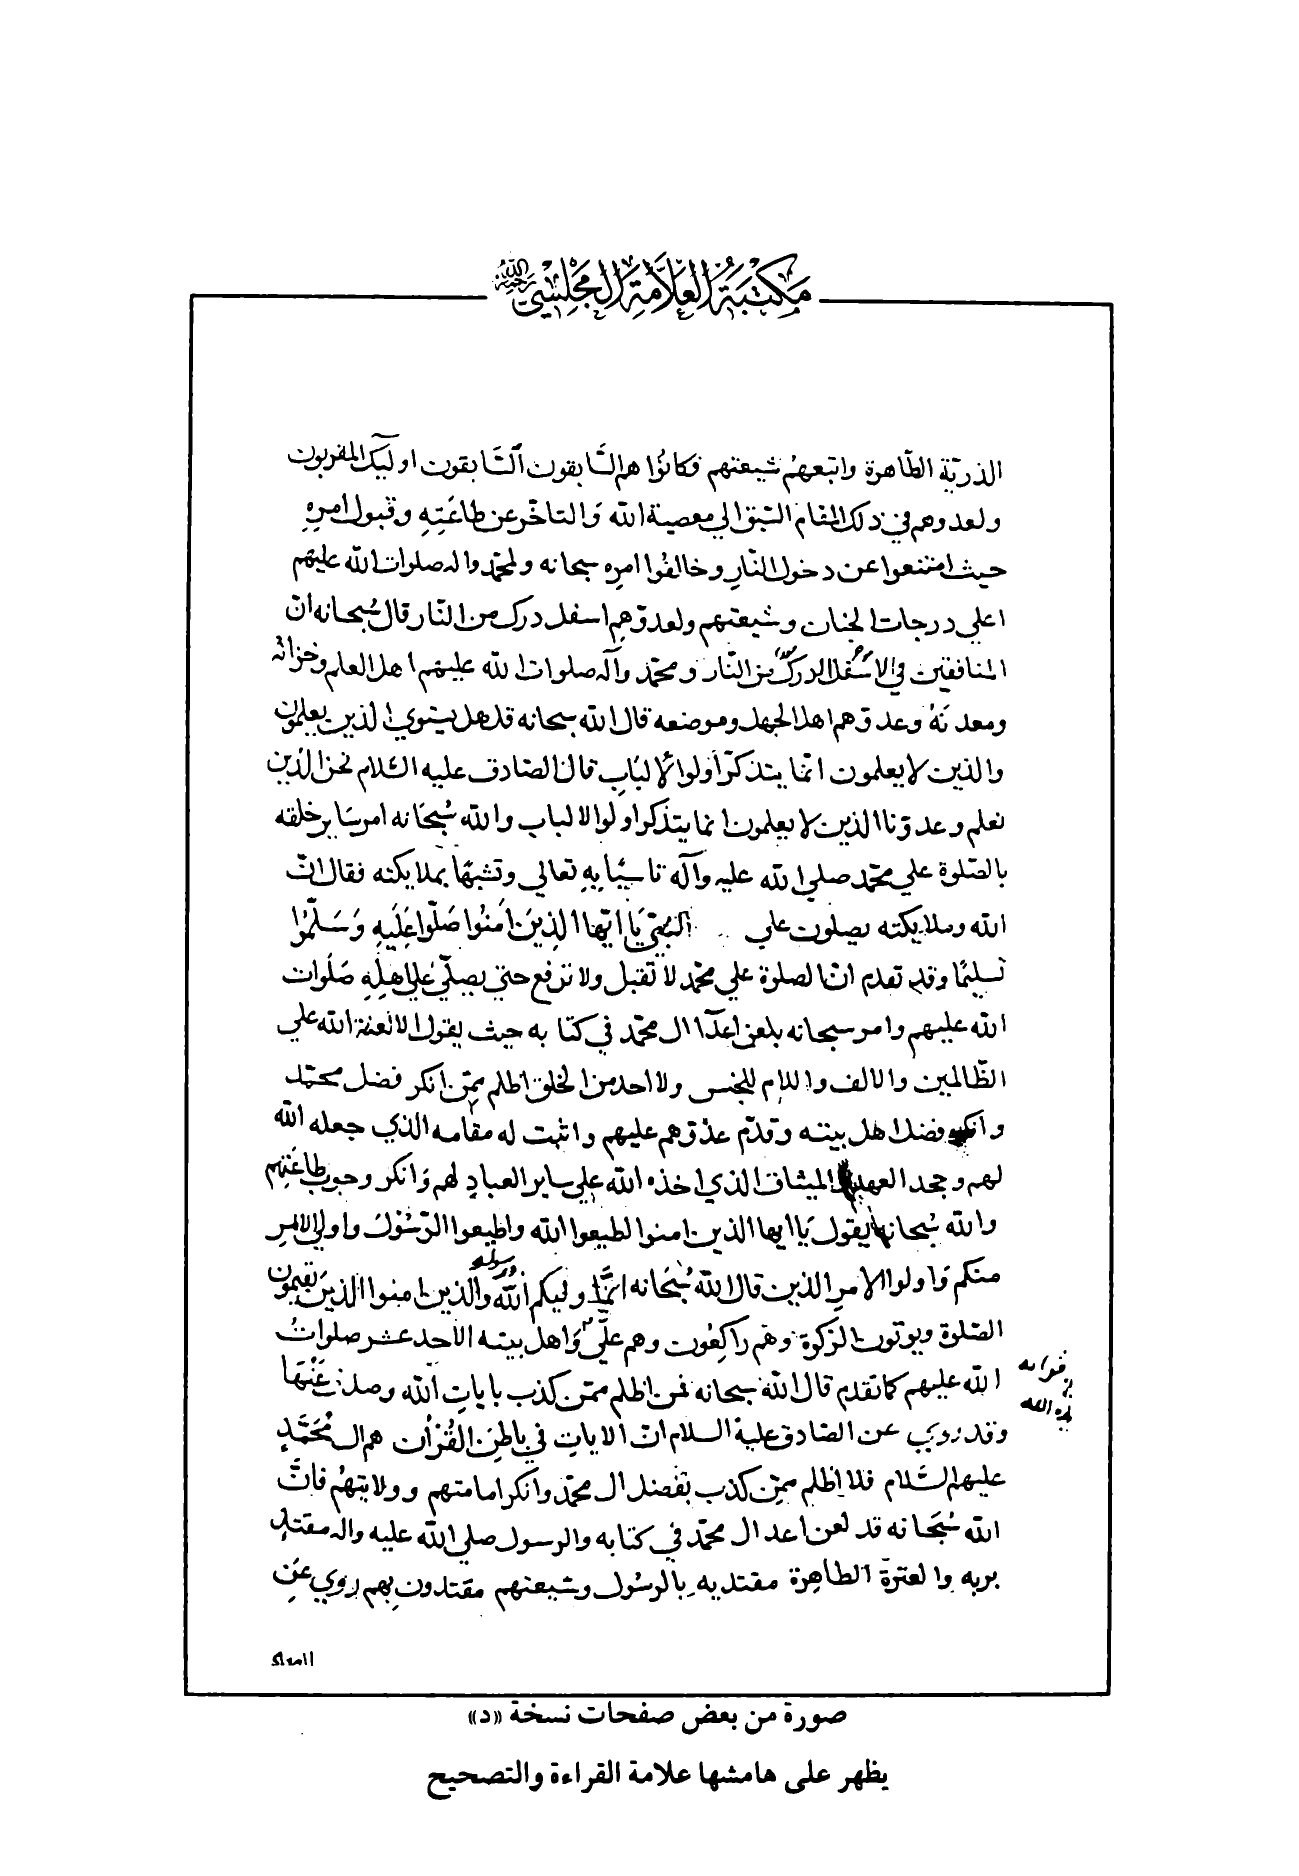 مكتبة العلامة المجلسي رحمه الله
الذرية الطاهرة واتبعهم شيعتهم فكانوا هم السابقون السابقون اوليك المقربون
ولعدوهم في ذلك المقام السبق الي معصية الله والتاخر عن طاعته وقبول امره
حيث امتنعوا عن دخول النار وخالفوا امره سبحانه ولمحمد واله صلوات الله عليهم
اعلي درجات الجنان وشيعتهم ولعدوهم اسفل درك من النار قال سبحانه ان
المنافقين في الاسفل الدرك من النار ومحمد وآله صلوات الله عليهم اهل العلم وخزانه
ومعدنه وعدوهم اهل الجهل وموضعه قال الله سبحانه قل هل يستوي الذين يعلمون
والذين لا يعلمون انما يتذكر اولوا الالباب قال الصادق عليه السلام نحن الذين
نعلم وعدونا الذين لا يعلمون انما يتذكر اولوا الالباب والله سبحانه امر ساير خلقه
بالصلوة علي محمد صلي الله عليه وآله تاسيا به تعالي وتشبها بملايكته فقال ان
الله وملايكته يصلون علي النبي يا ايها الذين امنوا صلوا عليه وسلموا
تسليما وقد تقدم ان الصلوة علي محمد لا تقبل ولا ترفع حتي يصلي علي اهله صلوات
الله عليهم وامر سبحانه بلعن اعدا ال محمد في كتابه حيث يقول الا لعنة الله علي
الظالمين والالف واللام للجنس ولا احد من الخلق اظلم ممن انكر فضل محمد
وانكر فضل اهل بيته وقدم عدوهم عليهم واثبت له مقامه الذي جعله الله
لهم وجحد العهد والميثاق الذي اخذه الله علي ساير العباد لهم وانكر وجوب طاعتهم
والله سبحانه يقول يا ايها الذين امنوا اطيعوا الله واطيعوا الرسول واولي الامر
منكم واولوا الامر الذين قال الله سبحانه انما وليكم الله ورسوله والذين امنوا الذين يقيمون
الصلوة ويوتون الزكوة وهم راكعون وهم علي واهل بيته الاحد عشر صلوات
الله عليهم كما تقدم قال الله سبحانه فمن اظلم ممن كذب بايات الله وصدف عنها
وقد روي عن الصادق عليه السلام ان الايات في باطن القران هم ال محمد
عليهم السلام فلا اظلم ممن كذب بفضل ال محمد وانكر امامتهم وولايتهم فان
الله سبحانه قد لعن اعدا ال محمد في كتابه والرسول صلي الله عليه واله مقتد
بربه والعترة الطاهرة مقتديه بالرسول وشيعتهم مقتدون بهم روي عن
صورة من بعض صفحات نسخة «د»
يظهر على هامشها علامة القراءة والتصحيح